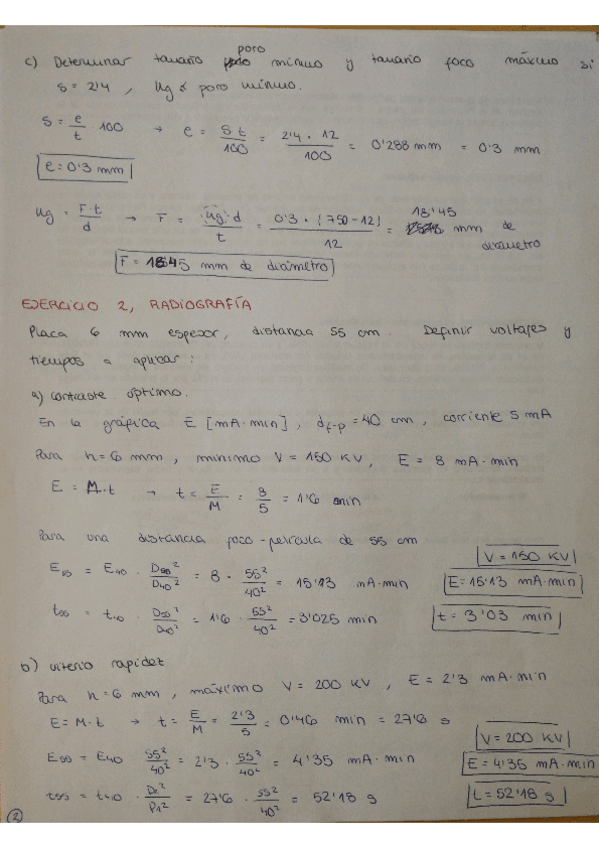 c) Determinar tamaño poro mínimo y tamaño foco máximo si
S = 2'4 , Ug α poro mínimo.
S = e/t 100 → e = S·t/100 = 2'4 · 12/100 = 0'288 mm = 0'3 mm
e = 0'3 mm
Ug = F·t/d → F = Ug·d/t = 0'3 · (750-12)/12 = 18'45 mm de diámetro
F = 18'45 mm de diámetro
EJERCICIO 2, RADIOGRAFÍA
Placa 6 mm espesor, distancia 55 cm. Definir voltajes y
tiempos a aplicar:
a) contraste óptimo.
En la gráfica E [mA·min], d f-p = 40 cm, corriente 5 mA
Para n=6 mm, mínimo V = 150 KV, E = 8 mA·min
E = M·t → t = E/M = 8/5 = 1'6 min
Para una distancia foco-película de 55 cm
V = 150 KV
E55 = E40 · D55²/D40² = 8 · 55²/40² = 15'13 mA·min
E = 15'13 mA·min
t55 = t40 · D55²/D40² = 1'6 · 55²/40² = 3'025 min
t = 3'03 min
b) criterio rapidez
Para n=6 mm, máximo V = 200 KV, E = 2'3 mA·min
E = M·t → t = E/M = 2'3/5 = 0'46 min = 27'6 s
V = 200 KV
E55 = E40 55²/40² = 2'3 · 55²/40² = 4'35 mA·min
E = 4'35 mA·min
t55 = t40 · = 27'6 · 55²/40² = 52'18 s
t = 52'18 s
2